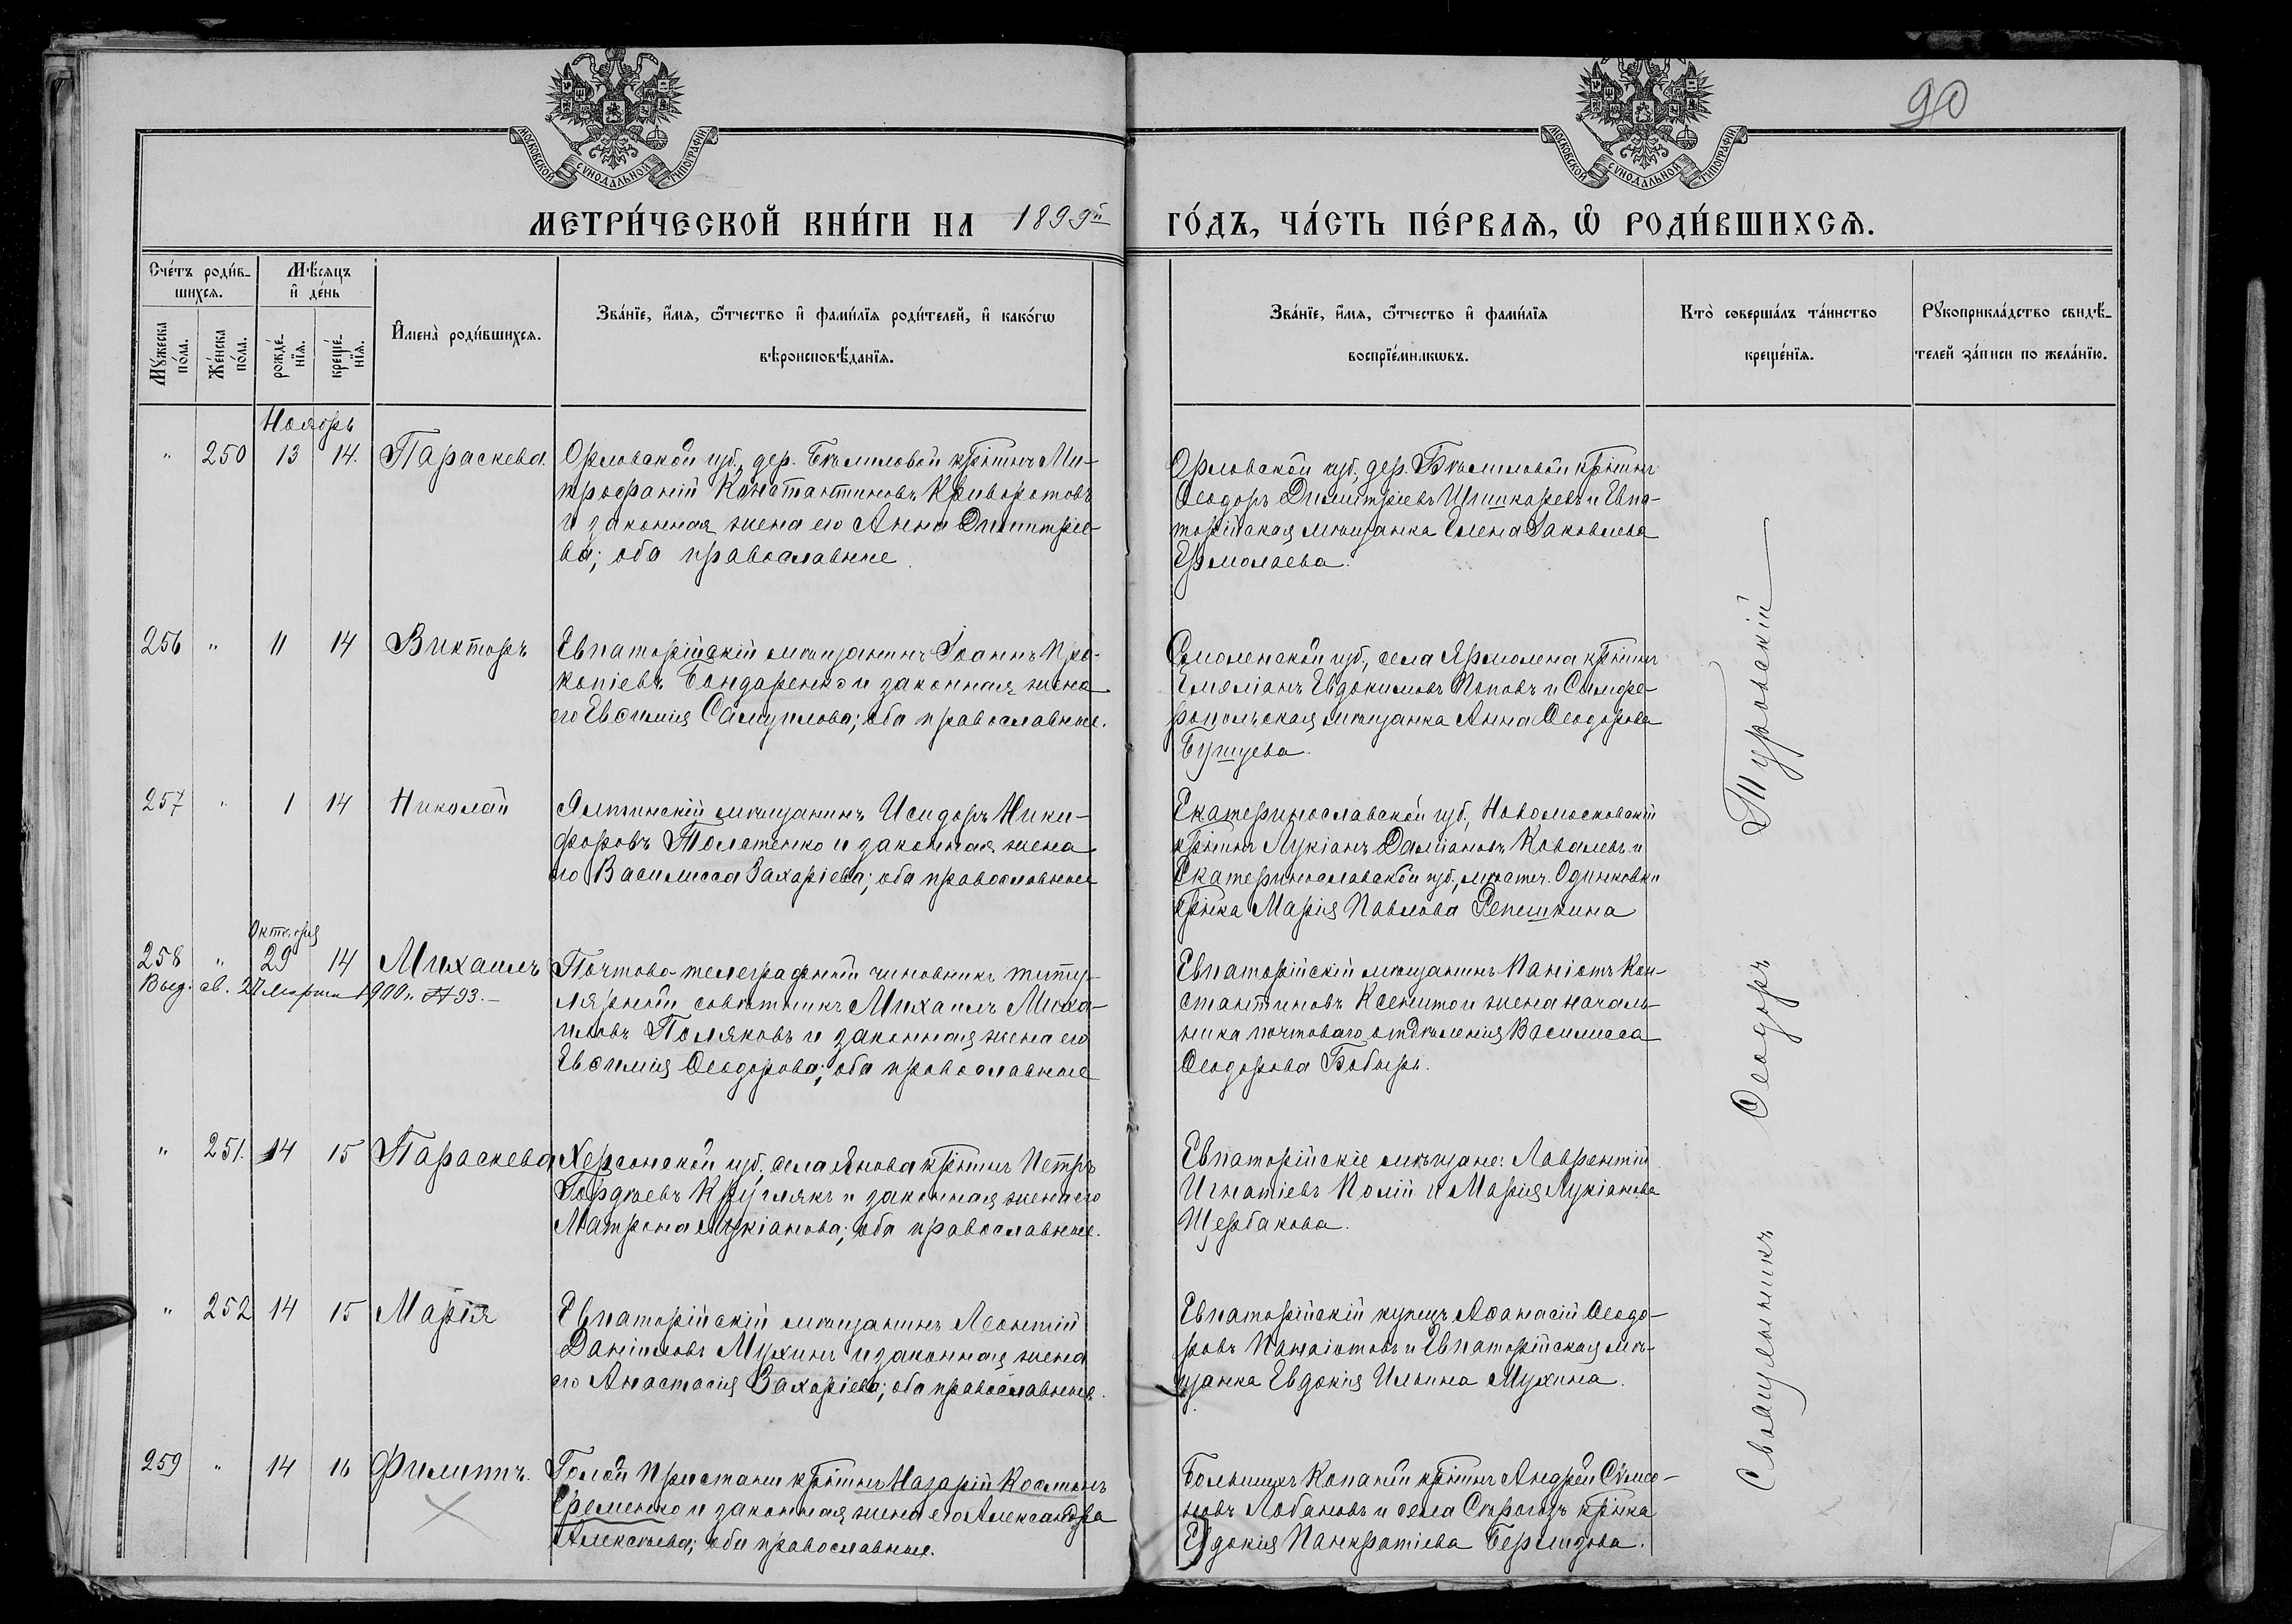 90
МОСКОВСКОЙ СѴНОДАЛЬНОЙ ТИПОГРАФІИ
МОСКОВСКОЙ СѴНОДАЛЬНОЙ ТИПОГРАФІИ
МЕТРИ́ЧЕСКОЙ КНИ́ГИ НА 1899й ГО́ДЪ, ЧА́СТЬ ПЕ́РВАѦ, Ѡ҆ РОДИ́ВШИХСѦ.
Сче́тъ роди́в-
шихсѧ.
Мꙋ́жеска по́ла.
Же́нска по́ла.
Мѣ́сѧцъ
и҆ де́нь
рожде́-
нїѧ.
креще́-
нїѧ.
И҆мена̀ роди́вшихсѧ.
Зва́нїе, и҆́мѧ, ѻ҆́тчество и҆ фами́лїѧ роди́телей, и҆ како́гѡ
вѣроисповѣ́данїѧ.
Зва́нїе, и҆́мѧ, ѻ҆́тчество и҆ фами́лїѧ
воспрїе́мникѡвъ.
Кто̀ соверша́лъ та́инство
креще́нїѧ.
Рꙋкоприкла́дство свидѣ́-
телей за́писи по жела́нїю.
Ноябрь
" 250 13 14. Параскева.
Орловской губ., дер. крстнъ Ми-
трофаній Константиновъ Криворотовъ
и законная жена его Анна Димитріе-
ва; оба православные.
Орловской губ., дер. крстнъ
Ѳеодоръ Димитріевъ Шишкаревъ и Евпа-
торійская мѣщанка Елена Іаковлева
Ермолаева.
256 " 11 14 Викторъ
Евпаторійскій мѣщанинъ Іоаннъ Про-
копіевъ Бондаренко и законная жена
его Евѳимія Самуилова; оба православные.
Смоленской губ., села Ярмолена крстнъ
Емеліанъ Евдокимовъ Поповъ и Симфе-
ропольская мѣщанка Анна Ѳеодорова
257 " 1 14 Николай
Ялтинскій мѣщанинъ Исидоръ Ники-
форовъ Толатенко и законная жена
его Василисса Захаріева; оба православные
Екатеринославской губ., Новомосковскій
крстнъ Лукіанъ Даміановъ Ковалевъ и
Екатеринославской губ., мѣстеч. Одинковки
крстнка Марія Павлова Репешкина
Октября
258 " 29 14 Михаилъ
Выд. св. 27 марта 1900 г. № 93.–
Почтово-телеграфный чиновникъ титу-
лярный совѣтникъ Михаилъ Миха-
иловъ Поляковъ и законная жена его
Евѳимія Ѳеодорова; оба православные
Евпаторійскій мѣщанинъ Панаіотъ Кон-
стантиновъ Ксенито и жена началь-
ника почтоваго отдѣленія Василисса
Ѳеодорова Бобырь.
" 251. 14 15 Параскева
Херсонской губ., села Янова крстнъ Петръ
Гордѣевъ Круглякъ и законная жена его
Матрона Лукіанова; оба православные.
Евпаторійскіе мѣщане: Лаврентій
Игнатіевъ Полій и Марія Лукіанова
Щербакова.
" 252 14 15 Марія
Евпаторійскій мѣщанинъ Леонтій
Даніиловъ Мухинъ и законная жена
его Анастасія Захаріева; оба православные.
Евпаторійскій купецъ Аѳанасій Ѳеодо-
ровъ Панаіотовъ и Евпаторійская мѣ-
щанка Евдокія Ильина Мухина.
259 " 14 16 Филиппъ.
Голой Пристани крстнъ Назарій Косминъ
Еременко и законная жена его Александра
Алексѣева; оба православные.
Большихъ Копаній крстнъ Андрей Симео-
новъ Лобановъ и села крстнка
Евдокія Панкратіева
Священникъ Ѳеодоръ Туровскій